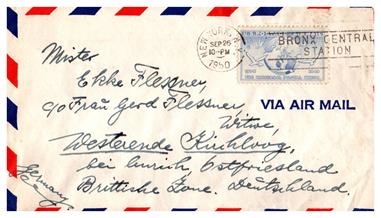 NEW YORK, N.Y.
SEP 26
10-PM
1950
BRONX CENTRAL
STATION
U.S. POSTAGE
Mister
Ekke Flessner,
c/o Frau Gerd Flessner,
Witwe,
VIA AIR MAIL
Westerende Kirchloog,
bei Aurich, Ostfriesland
Brittische Zone. Deutschland.
Germany